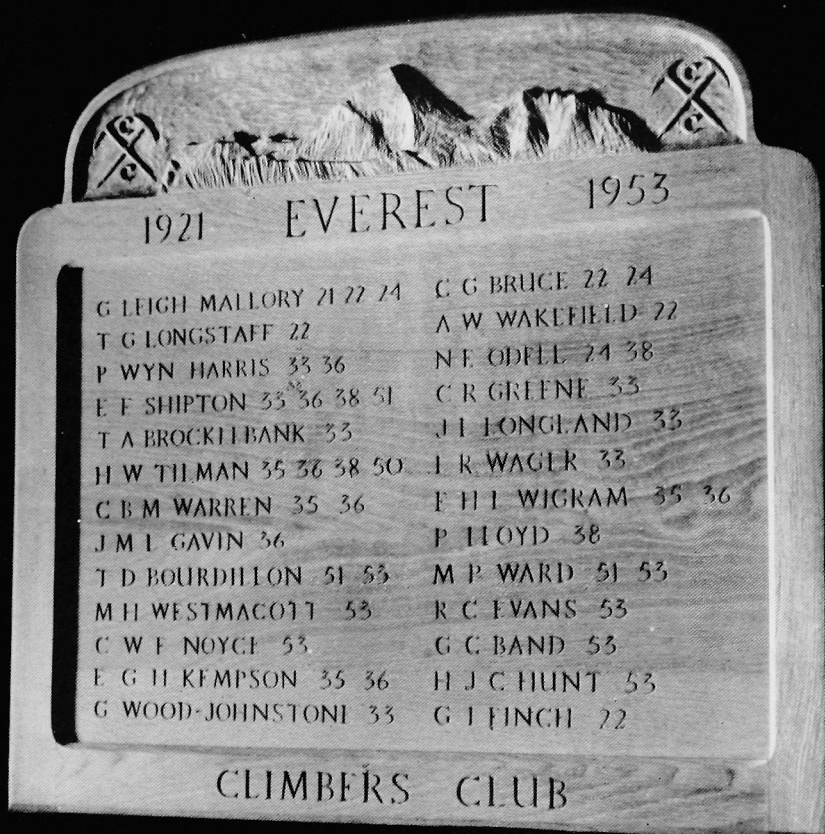 C C
C C
1921 EVEREST 1953
G LEIGH MALLORY 21 22 24
T G LONGSTAFF 22
P WYN HARRIS 33 36
E E SHIPTON 33 36 38 51
T A BROCKLEBANK 33
H W TILMAN 35 36 38 50
C B M WARREN 35 36
J M L GAVIN 36
T D BOURDILLON 51 53
M H WESTMACOTT 53
C W F NOYCE 53
E G H KEMPSON 35 36
G WOOD-JOHNSTONE 33
C G BRUCE 22 24
A W WAKEFIELD 22
N E ODELL 24 38
C R GREENE 33
J L LONGLAND 33
L R WAGER 33
E H L WIGRAM 35 36
P LLOYD 38
M P WARD 51 53
R C EVANS 53
G C BAND 53
H J C HUNT 53
G I FINCH 22
CLIMBERS CLUB